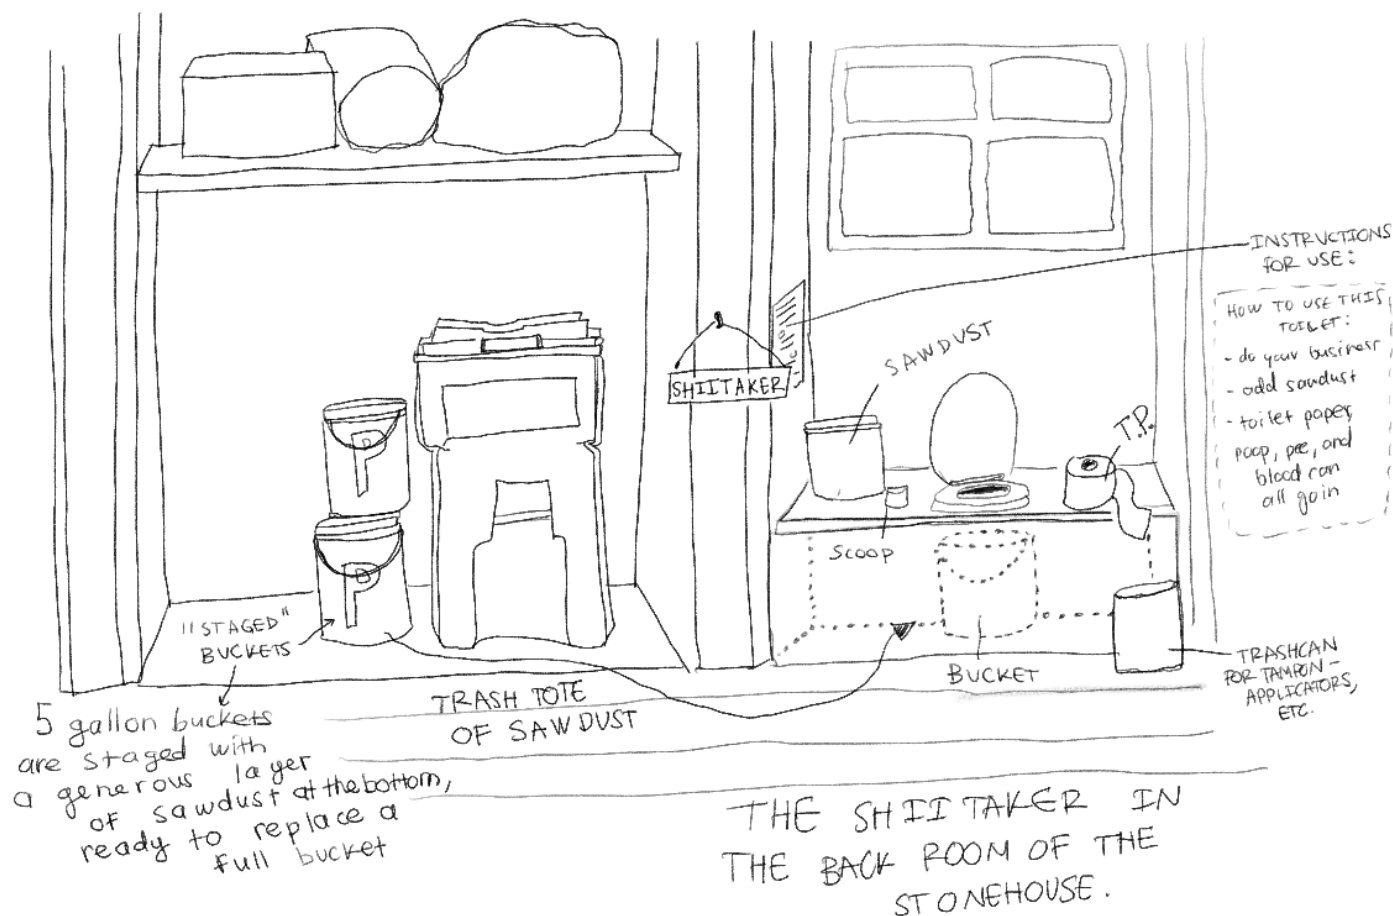 INSTRUCTIONS
FOR USE:
HOW TO USE THIS
TOILET:
- do your business
- add sawdust
- toilet paper,
poop, pee, and
blood can
all go in
SAWDUST
SHIITAKER
T.P.
SCOOP
P
P
"STAGED"
BUCKETS
BUCKET
TRASHCAN
FOR TAMPON-
APPLICATORS,
ETC.
TRASH TOTE
OF SAWDUST
5 gallon buckets
are staged with
a generous layer
of sawdust at the bottom,
ready to replace a
full bucket
THE SHIITAKER IN
THE BACK ROOM OF THE
STONEHOUSE.